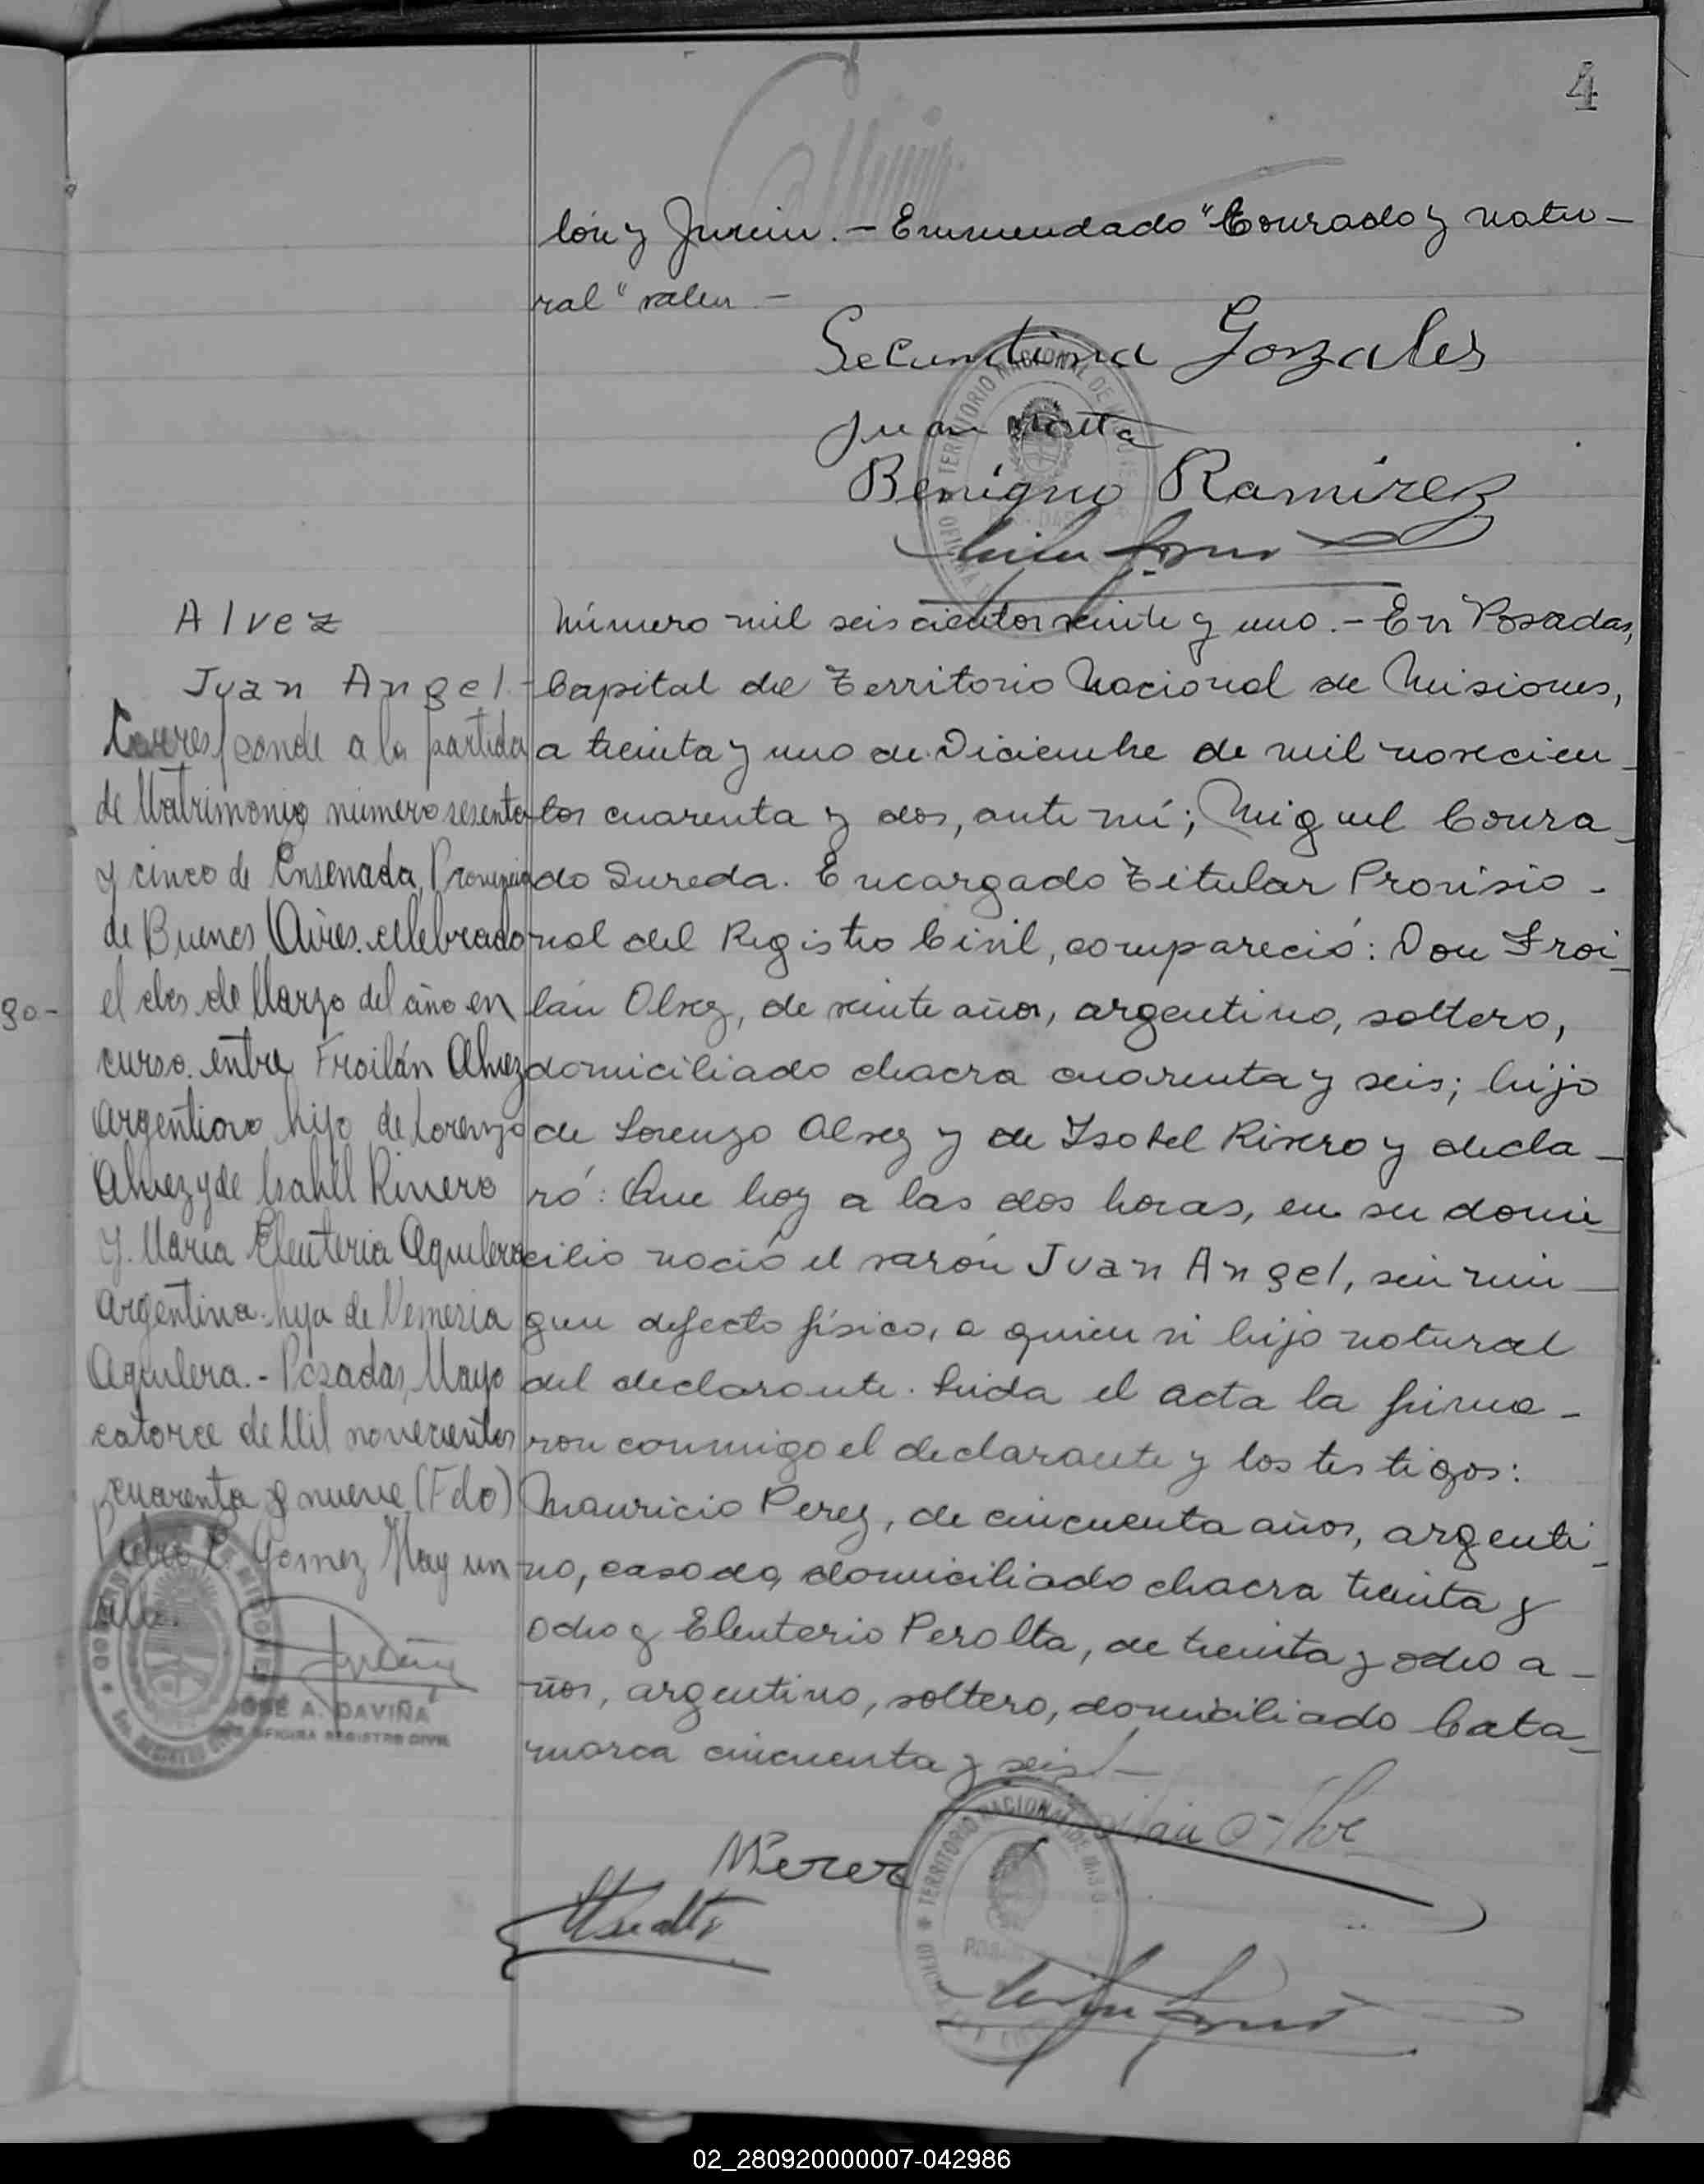 4
lón y Junin. - Enmendado "Conrado y natu-
ral" valen -
Secundina Gonzales
Juan
Benigno Ramirez
Alvez
Juan Angel.-
Corresponde a la partida
de Matrimonio número sesenta
y cinco de Ensenada, Provincia
de Buenos Aires. celebrado
el dos de Marzo del año en
curso. entre Froilán Alvez
Argentino hijo de Lorenzo
Alvez y de Isabel Rivero
y. María Eleuteria Aquilera
Argentina. hija de Nemesia
Aquilera. - Posadas, Mayo
catorce de Mil novecientos
cuarenta y nueve (Fdo)
Pedro C. Gomez Hay un
sello.
JOSÉ A. DAVIÑA
OFICINA REGISTRO CIVIL
Número mil seiscientos veinte y uno. - En Posadas,
Capital del Territorio Nacional de Misiones,
a treinta y uno de Diciembre de mil novecien-
tos cuarenta y dos, ante mí; Miguel Conra-
do Sureda. Encargado Titular Proviso-
rial del Registro Civil, compareció: Don Froi-
lán Alvez, de veinte años, argentino, soltero,
domiciliado chacra cuarenta y seis; hijo
de Lorenzo Alvez y de Isabel Rivero y decla-
ró: Que hoy a las dos horas, en su domi-
cilio nació el varón Juan Angel, sin nin-
gun defecto físico, a quien vi hijo natural
del declarante. Leida el acta la firma-
ron conmigo el declarante y los testigos:
Mauricio Perez, de cincuenta años, argenti-
no, casado, domiciliado chacra treinta y
ocho y Eleuterio Peralta, de treinta y ocho a-
ños, argentino, soltero, domiciliado Cata-
marca cincuenta y seis. -
MPerez
02_280920000007-042986